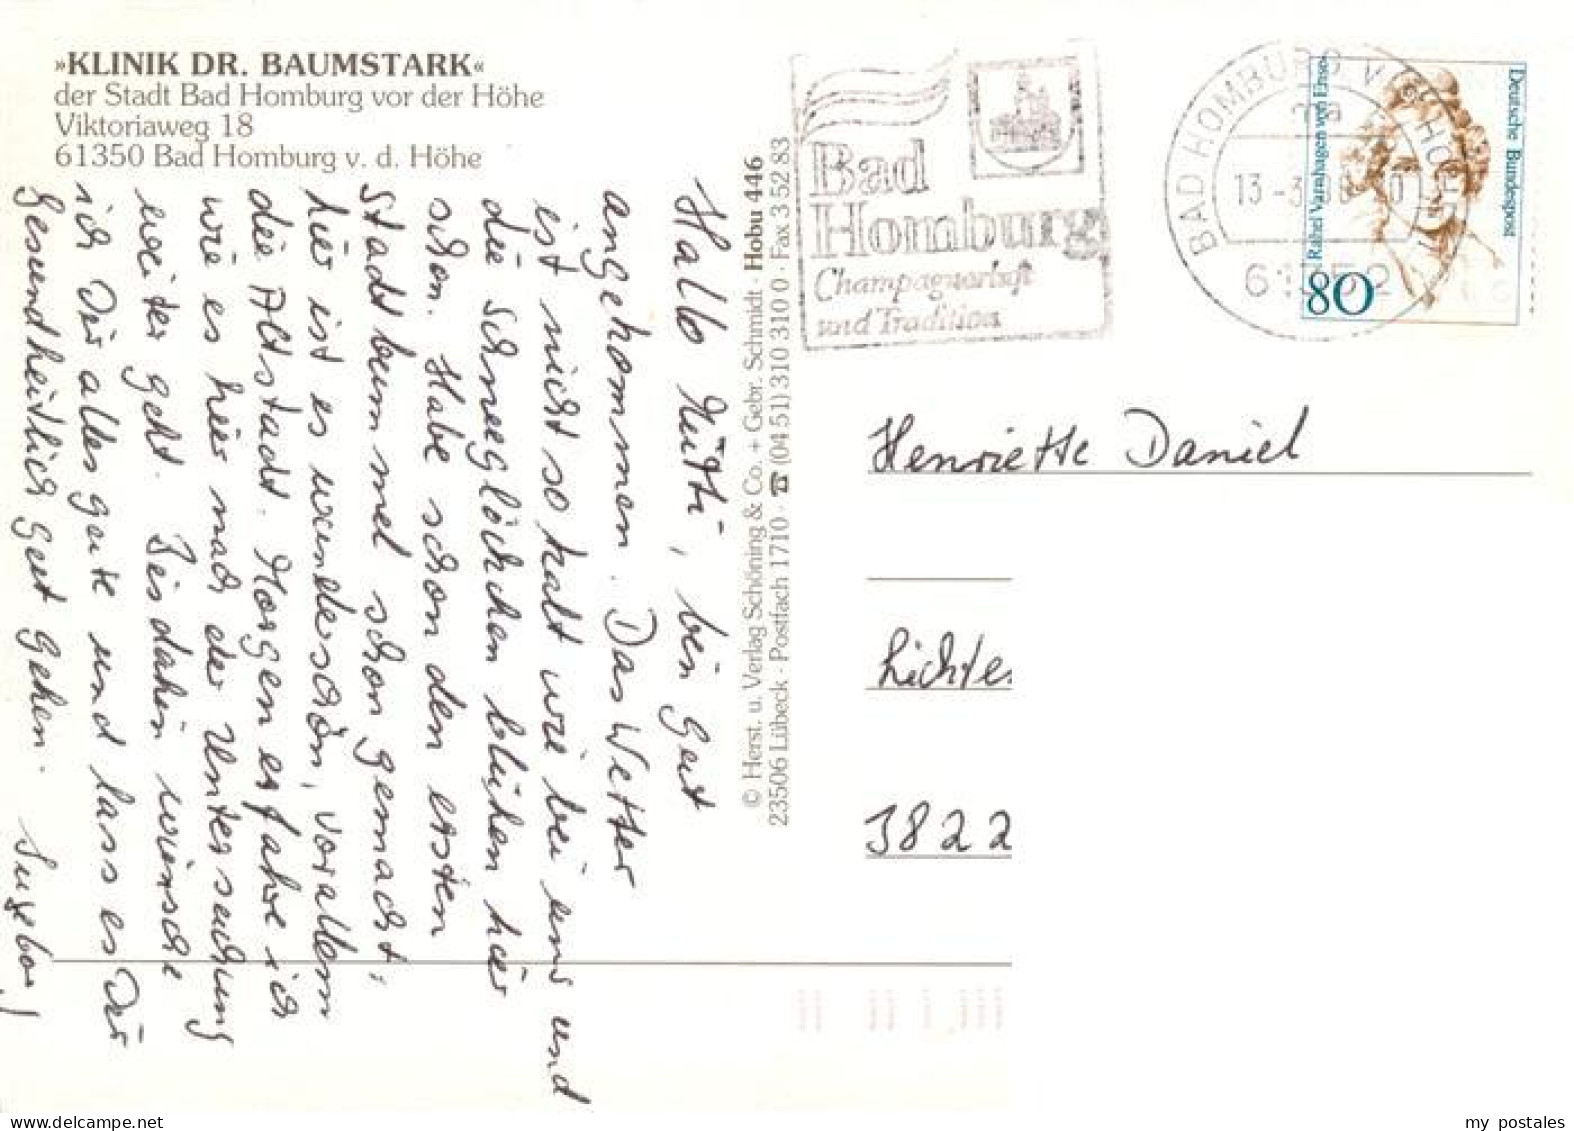 »KLINIK DR. BAUMSTARK«
der Stadt Bad Homburg vor der Höhe
Viktoriaweg 18
61350 Bad Homburg v. d. Höhe
Hallo Mutti, bin gut
angekommen. Das Wetter
ist nicht so kalt wie bei uns und
die Schneeglöckchen blühen hier
schon. Habe schon den ersten
Stadtbummel schon gemacht,
hier ist es wunderschön, vorallem
die Altstadt. Morgen erfahre ich
wie es hier nach der Untersuchung
weiter geht. Bis dahin wünsche
ich Dir alles gute und lass es Dir
Gesundheitlich gut gehen.
© Herst. u. Verlag Schöning & Co. + Gebr. Schmidt · Hobu 446
23506 Lübeck · Postfach 1710 · ☎ (04 51) 310 310 0 · Fax 3 52 83
Bad
Homburg
Champagnerluft
und Tradition
BAD HOMBURG V D HÖHE
ma
13-3
Rahel Varnhagen von Ense
Deutsche Bundespost
80
Henriette Daniel
Lichte
3822
my postales